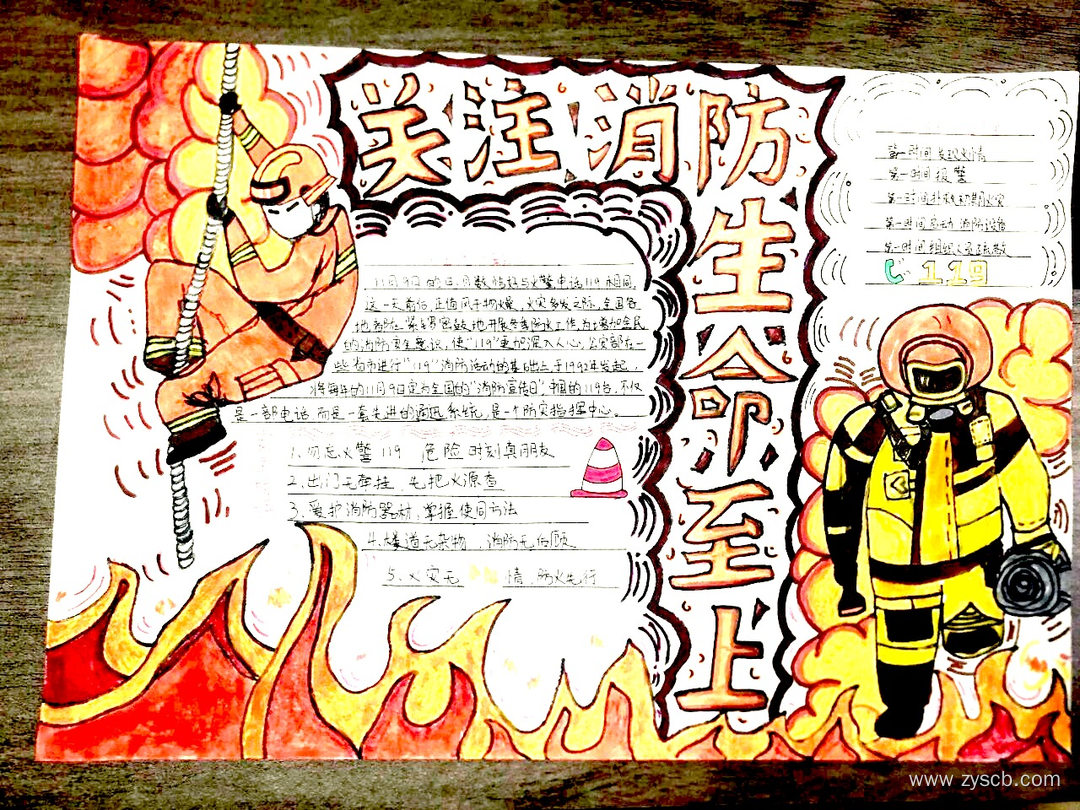 关注消防
生命至上
第一时间发现火情
第一时间报警
第一时间扑救初期火灾
第一时间启动消防设备
第一时间组织人员疏散
119
11月9日的月日数恰好与火警电话119相同,
这一天前后,正值风干物燥、火灾多发之际,全国各
地都在紧锣密鼓地开展冬季防火工作。为增加全民
的消防安全意识,使"119"更加深入人心,公安部在一
些省市进行"119"消防活动的基础上于1992年发起,
将每年的11月9日定为全国的"消防宣传日",中国的119台,不仅
是一部电话,而是一套先进的通迅系统,是一个防灾指挥中心。
1.勿忘火警119 危险时刻真朋友
2.出门无牵挂,先把火源查
3.爱护消防器材,掌握使用方法
4.楼道无杂物,消防无后顾
5.火灾无情,防火先行
www.zyscb.com